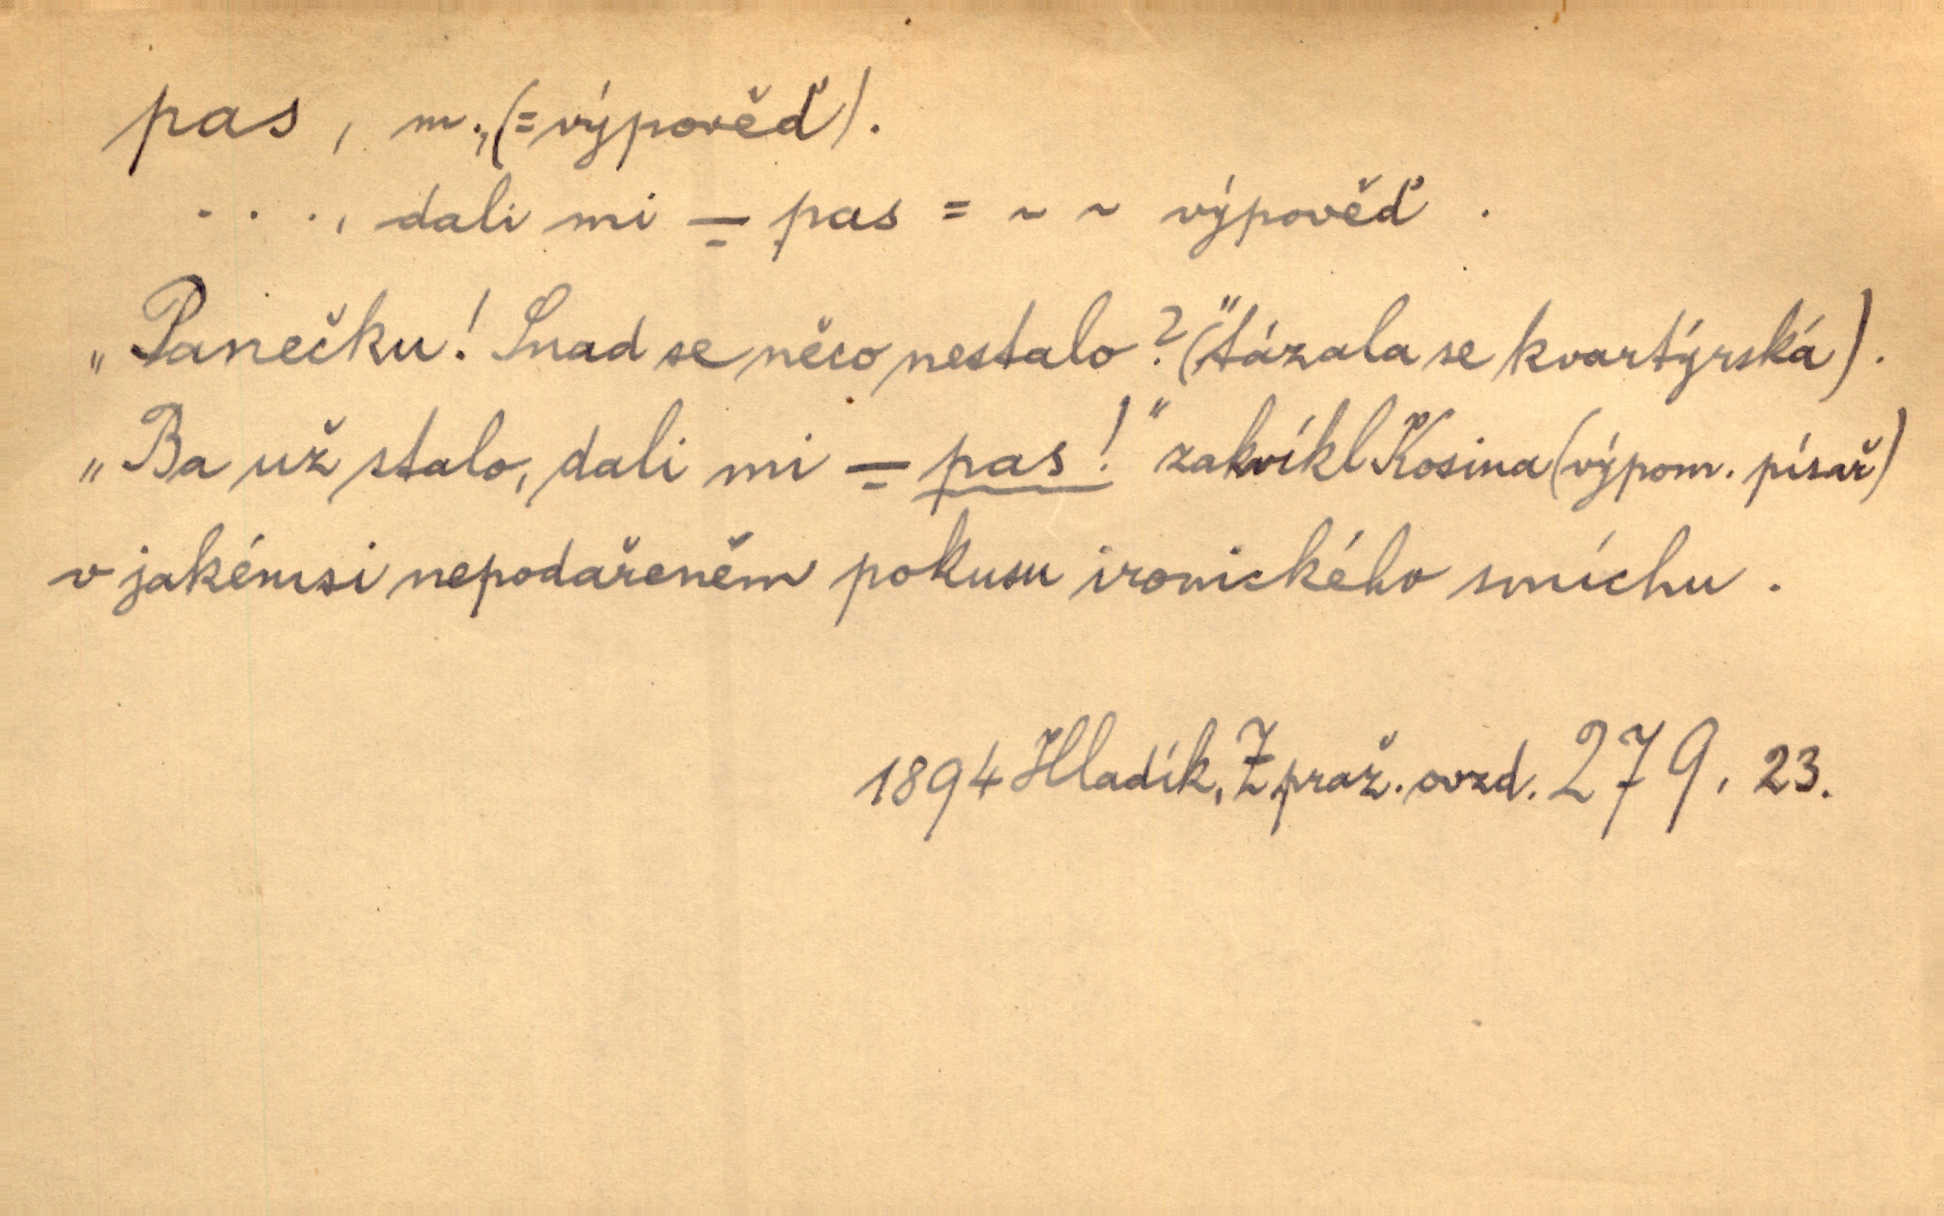 pas, m., (= výpověď).
. . . , dali mi — pas = ~ ~ výpověď.
„Panečku! Snad se něco nestalo?" (tázala se kvartýrská).
„Ba už stalo, dali mi — pas!" zakvíkl Kosina (výpom. písař)
v jakémsi nepodařeném pokusu ironického smíchu.
1894 Hladík, Z praž. ovzd. 279, 23.